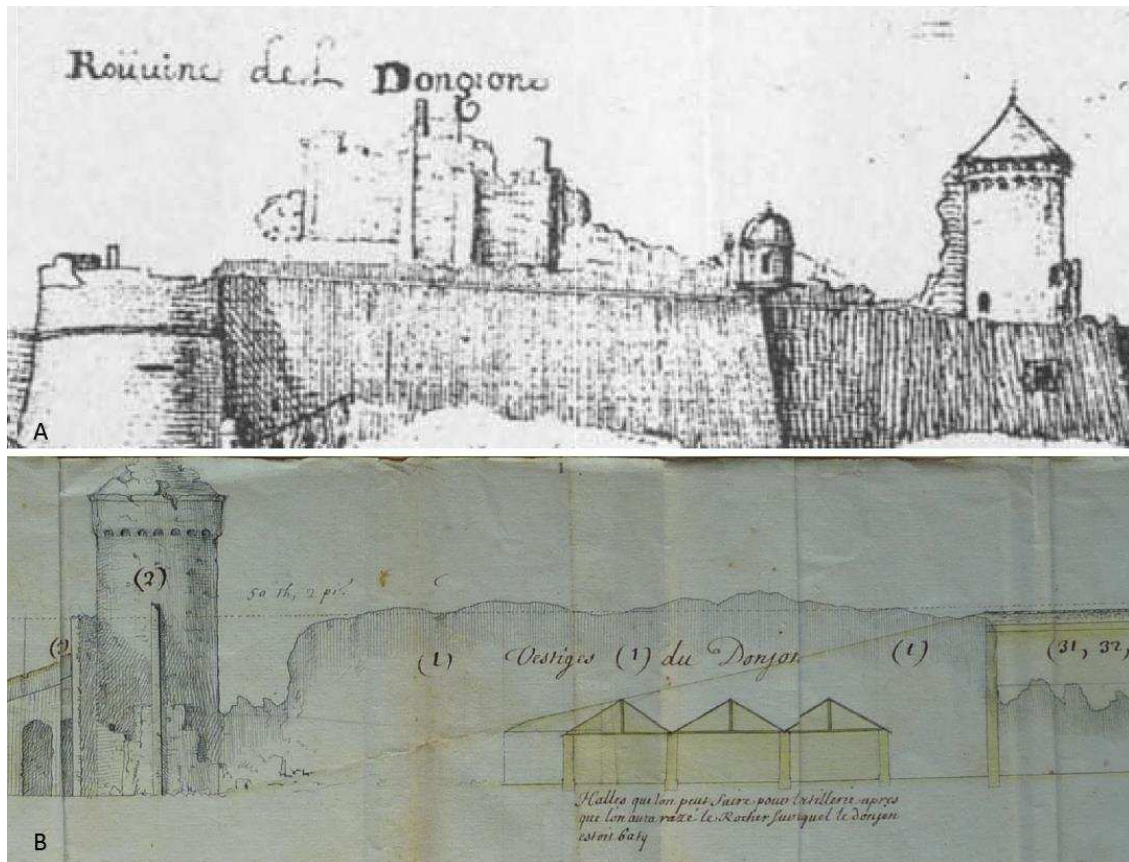 Roüuine de L Dongione
A
(2)
50 th, 2 pi.
(1) Vestiges (1) du Donjon (1)
(31, 32,
Halles qu'lon peut faire pour l'artillerie apres
que l'on aura razé le Rocher sur lequel le donjon
estoit baty
B